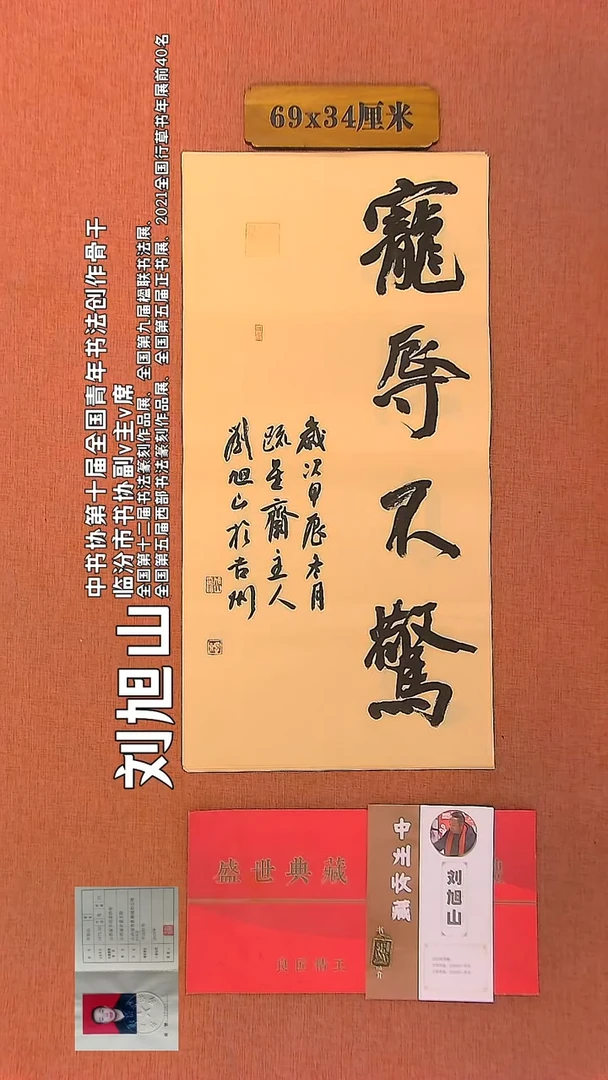 69x34厘米
寵辱不驚
歲次甲辰冬月
主人
劉旭山於吉州
刘旭山
中书协第十届全国青年书法创作骨干
临汾市书协副v主v席
全国第十二届书法篆刻作品展、全国第九届楹联书法展、
全国第五届西部书法篆刻作品展、全国第五届正书展、2021全国行草书年展前40名
盛世典藏
中州收藏
刘旭山